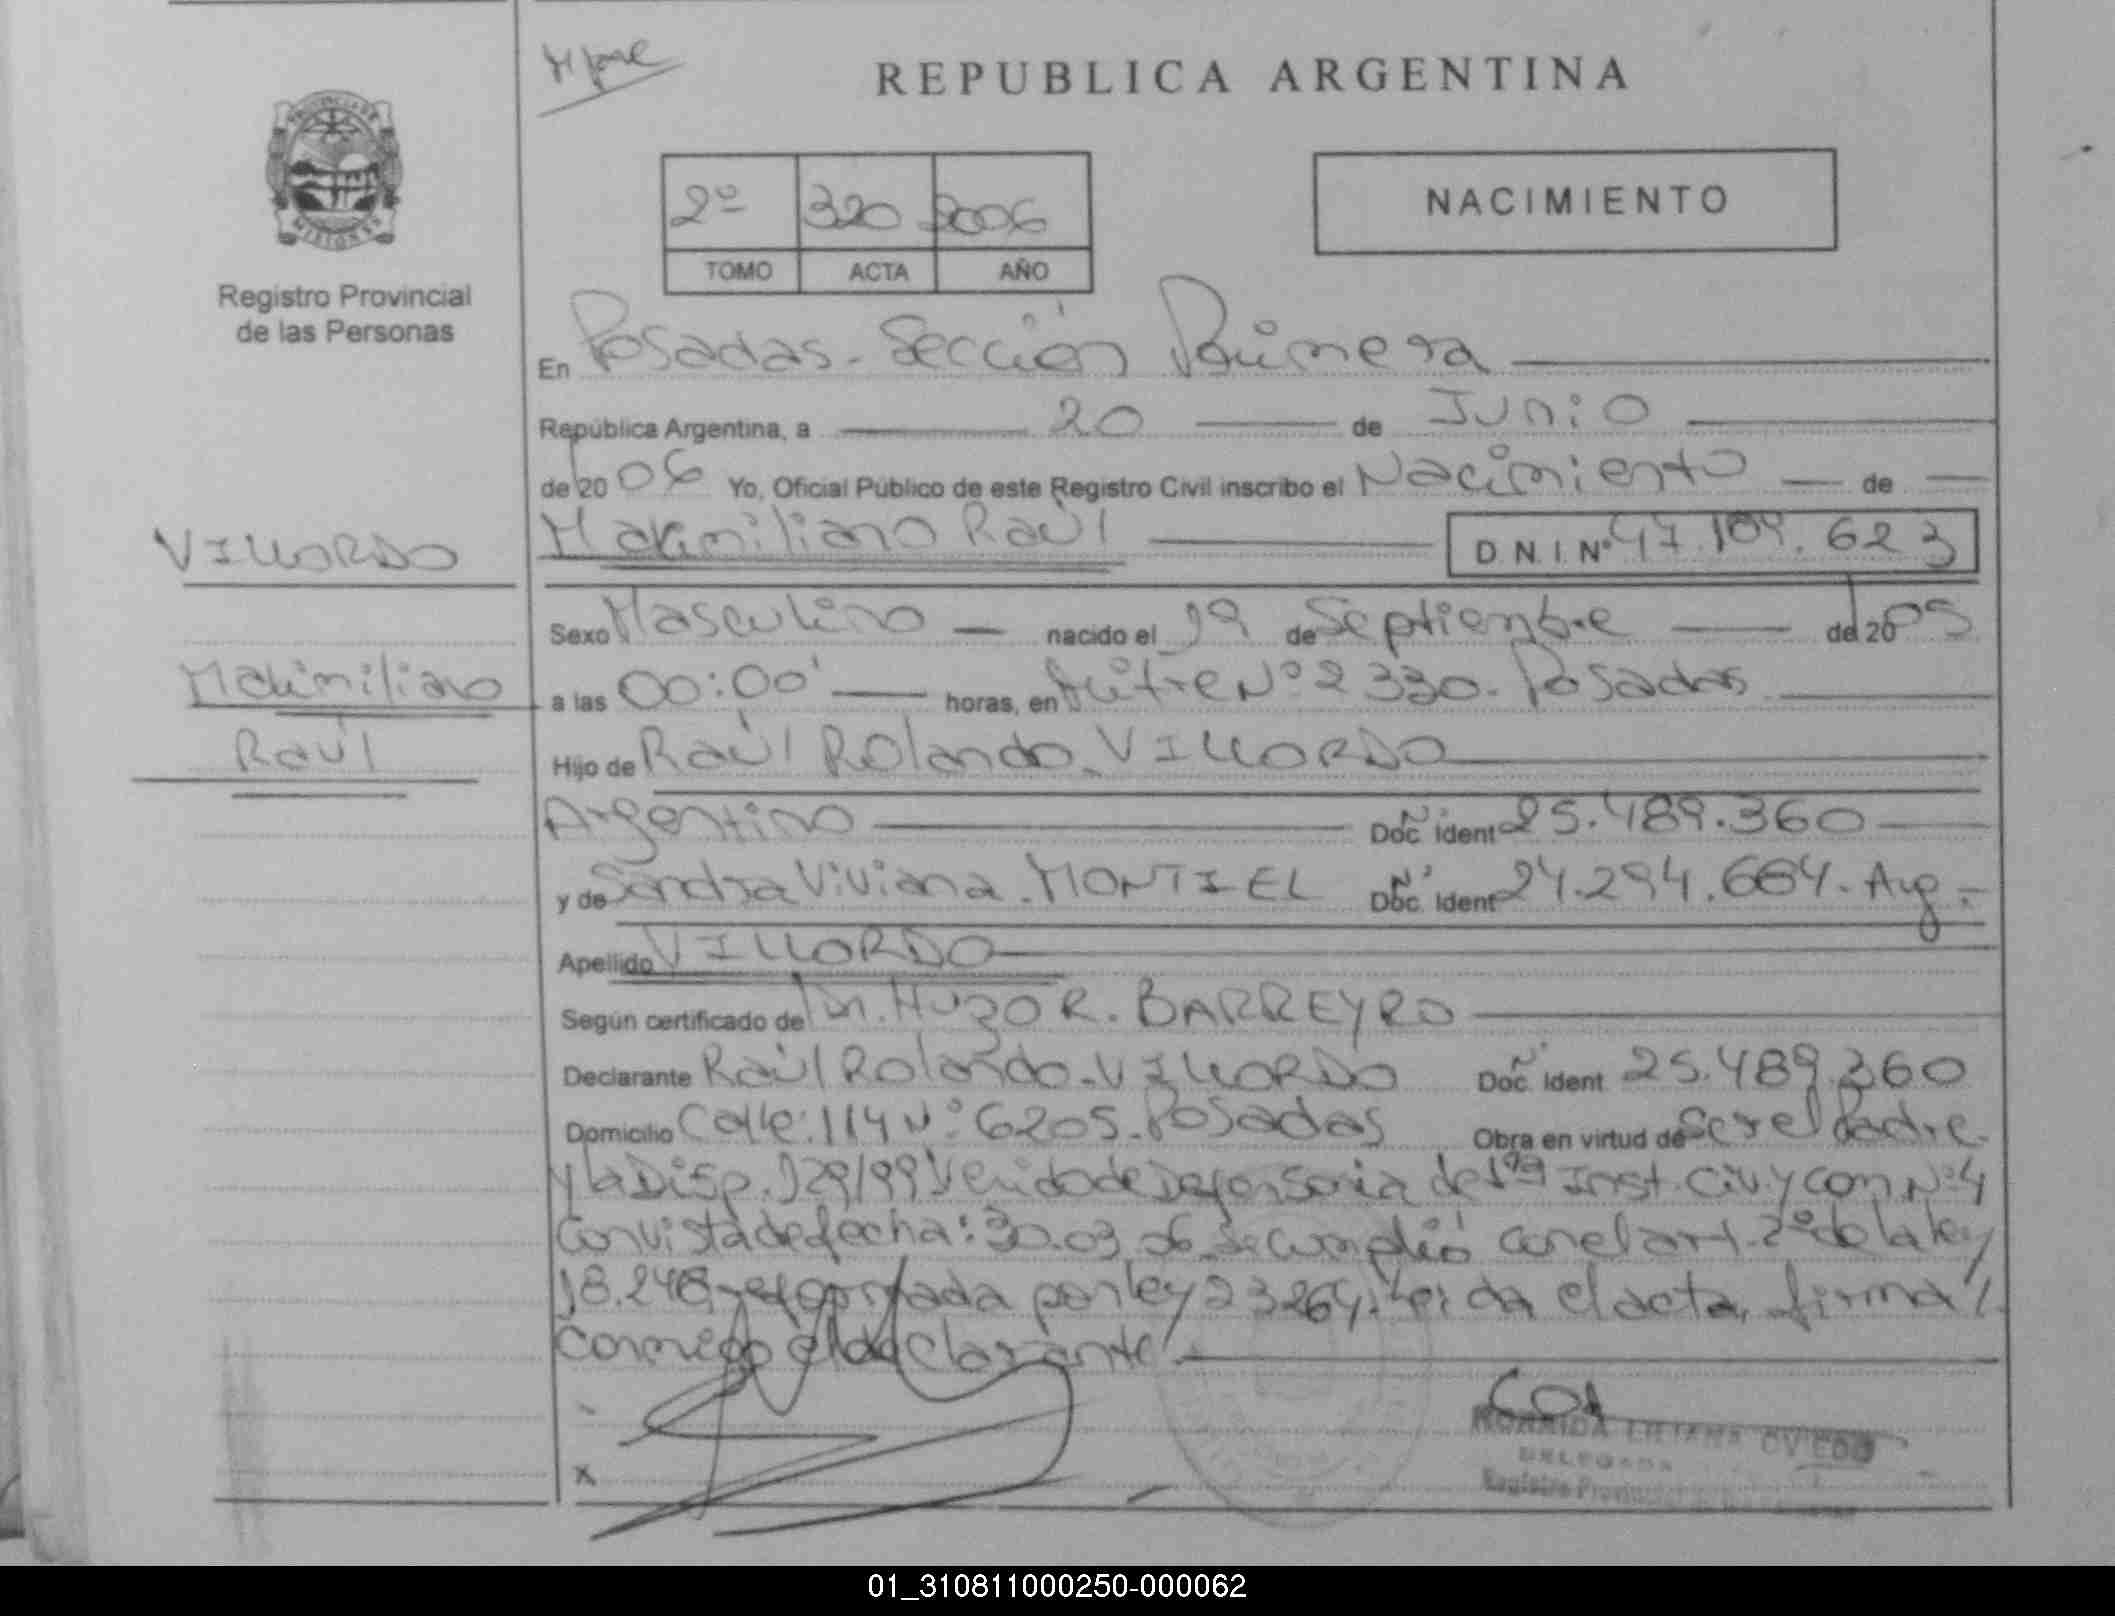 REPUBLICA ARGENTINA
PROVINCIA DE MISIONES
Registro Provincial
de las Personas
2º 320 2006
TOMO ACTA AÑO
NACIMIENTO
En Posadas - Sección Primera
República Argentina, a 20 de Junio
de 2006 Yo, Oficial Público de este Registro Civil inscribo el Nacimiento de
Maximiliano Raúl D.N.I. Nº 47.104.623
VILLORDO
Maximiliano
Raúl
Sexo Masculino nacido el 19 de Septiembre de 2005
a las 00:00' horas, en Mitre Nº 2330 - Posadas
Hijo de Raúl Rolando VILLORDO
Argentino Doc. Ident Nº 25.489.360
y de Sandra Viviana MONTIEL Doc. Ident Nº 24.294.664 - Arg.-
Apellido VILLORDO
Según certificado de Dr. HUGO R. BARREYRO
Declarante Raúl Rolando VILLORDO Doc. Ident Nº 25.489.360
Domicilio Calle: 114 Nº: 6205 - Posadas Obra en virtud de Ser el Padre
y la Disp. 129/99 Venido de Defensoria de 1ra Inst. Civ. y Com Nº 4
Con vista de fecha: 30.03.06 Se cumplió con el art. 2º de la ley
18.248 reformada por ley 23264. Leida el acta, firma
conmigo el declarante
LILIANA OVIEDO
DELEGADA
Registro Provincial de las Personas
x
01_310811000250-000062